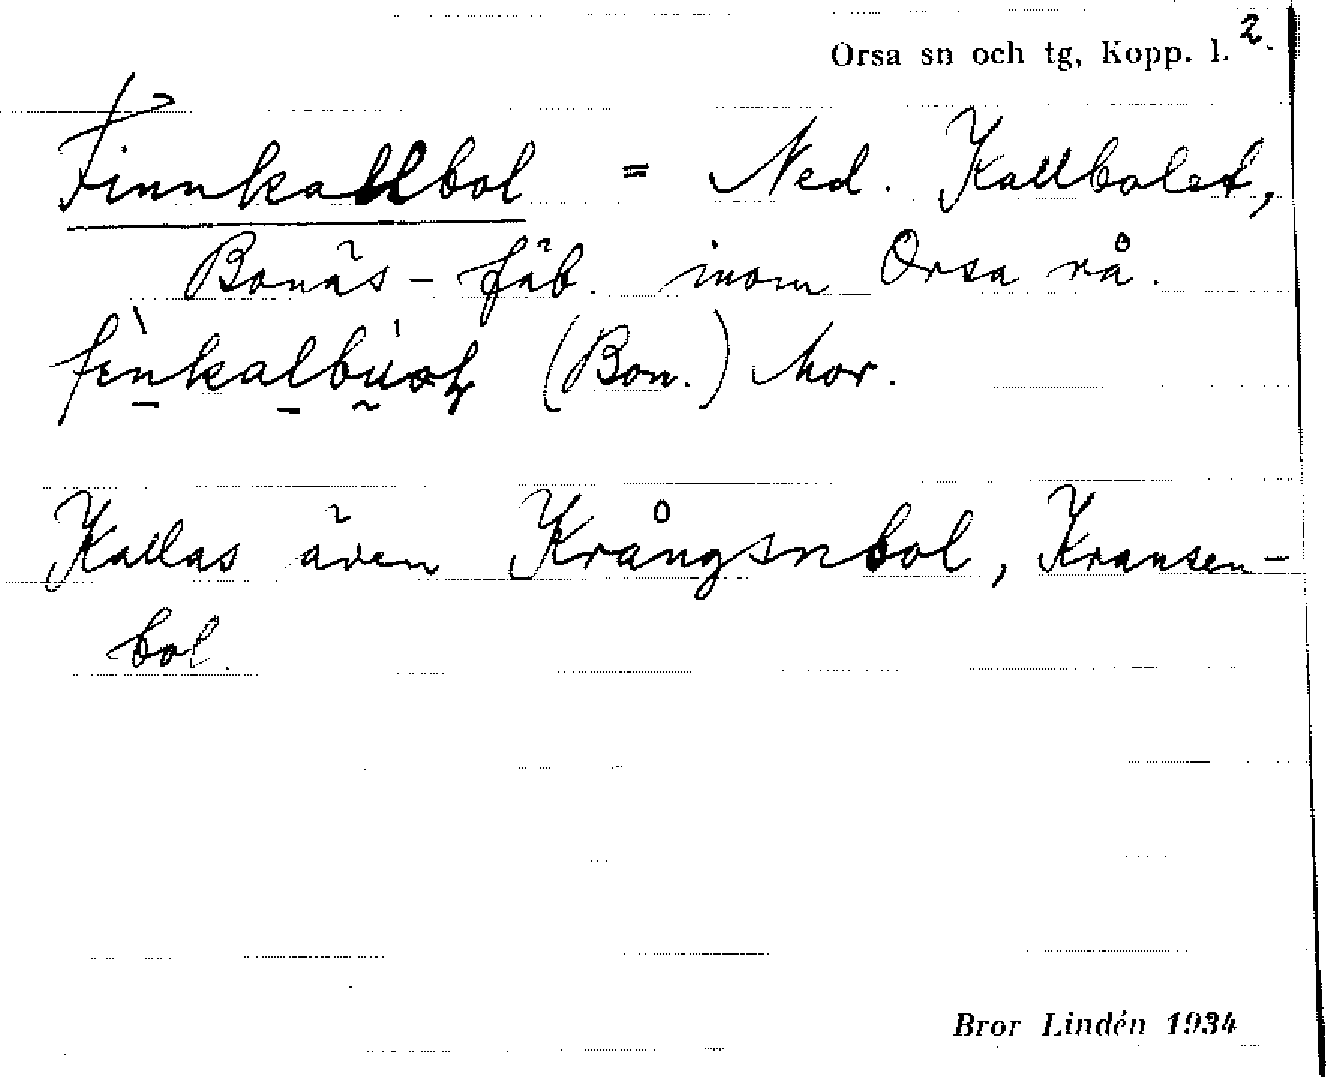 Orsa sn och tg, Kopp. l. 2.
Finnkallbol = Ned. Kallbolet,
Bonäs-fäb. inom Orsa rå.
(Bon.) Mor.
Kallas även Krångsnbol, Kransen-
bol.
Bror Lindén 1934